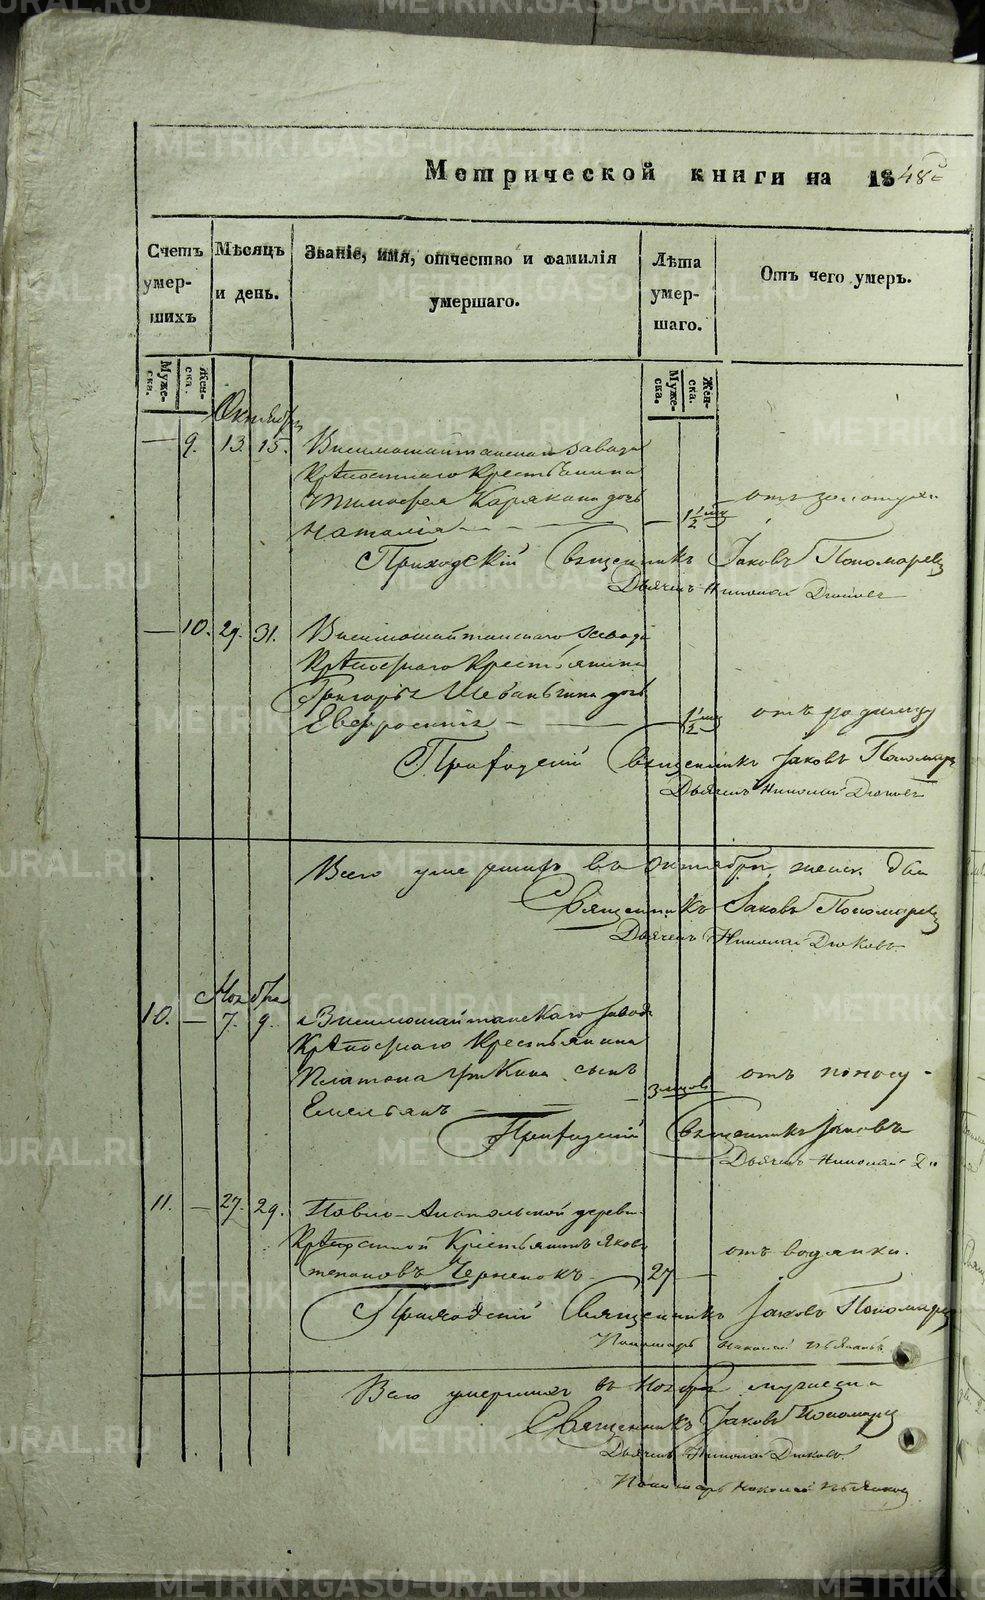 METRIKI.GASO-URAL.RU
Метрической книги на 1848 г
Счетъ умершихъ
Мѣсяцъ и день.
Званіе, имя, отчество и фамилія умершаго.
Лѣта умершаго.
Отъ чего умеръ.
Мужеска.
Женска.
Мужеска.
Женска.
Октябрь
— 9. 13. 15. Висимошайтанскаго завода
Крѣпостнаго Крестьянина
Тимофея Карякина дочь
Наталія — 1½ мц отъ золотухи
Приходскій Священникъ Іаковъ Пономаревъ
Дьячекъ Николай Дюковъ
— 10. 29. 31. Висимошайтанскаго завода
Крѣпостнаго Крестьянина
Григорья дочь
Евфросинія — 1½ мц отъ родимцу
Приходскій Священникъ Іаковъ Пономарев
Дьячекъ Николай Дюковъ
Всего умершихъ въ Октябрѣ женск. два
Священникъ Іаковъ Пономаревъ
Дьячекъ Николай Дюковъ
Ноябрь
10. — 7. 9. Висимошайтанскаго завод
Крѣпостнаго Крестьянина
Платона сынъ
Емельянъ — 3 мцовъ отъ поносу
Приходскій Священникъ Іаковъ
Дьячекъ Николай Дю
11. — 27. 29. Павло-Анатольской деревни
Крѣпостной Крестьянинъ Яковъ
Степановъ Черненокъ 27 — отъ водянки.
Приходскій Священникъ Іаковъ Пономарев
Пономарь Николай
Всего умершихъ въ Ноябрѣ мужеска
Священникъ Іаковъ Пономарев
Дьячекъ Николай Дюковъ
Пономарь Николай